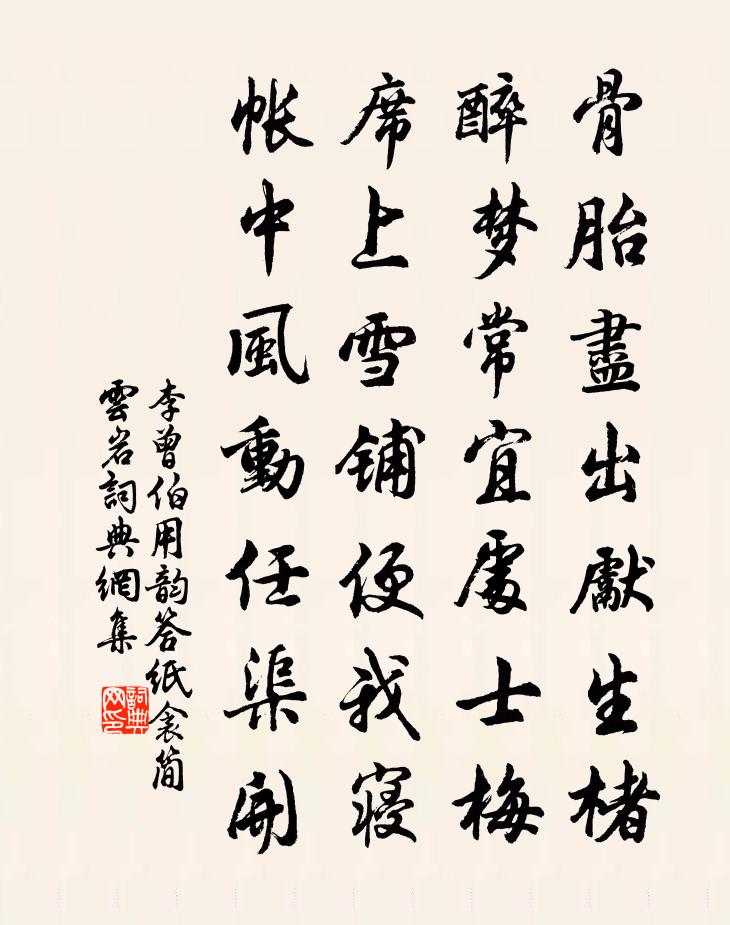 骨胎盡出獻生楮
醉梦常宜處士梅
席上雪铺便我寝
帐中風動任渠開
李曾伯用韵答纸衾简
雲岩詞典網集
詞典
网印